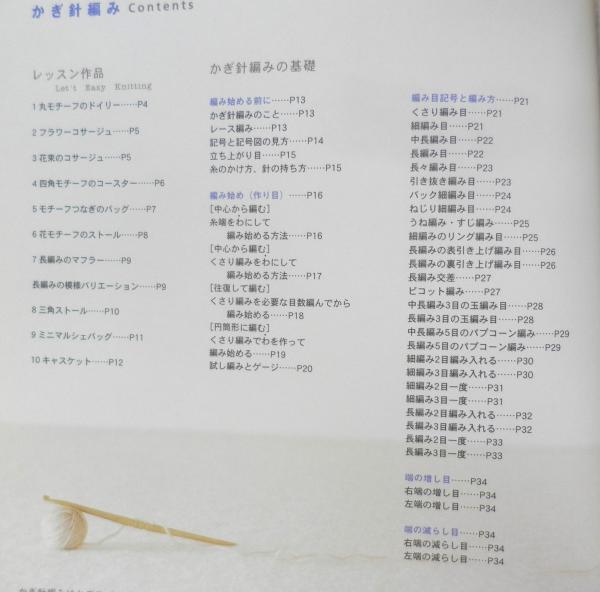 かぎ針編み Contents
レッスン作品
Let't Easy Knitting
1 丸モチーフのドイリー……P4
2 フラワーコサージュ……P5
3 花束のコサージュ……P5
4 四角モチーフのコースター……P6
5 モチーフつなぎのバッグ……P7
6 花モチーフのストール……P8
7 長編みのマフラー……P9
長編みの模様バリエーション……P9
8 三角ストール……P10
9 ミニマルシェバッグ……P11
10 キャスケット……P12
かぎ針編みの基礎
編み始める前に……P13
かぎ針編みのこと……P13
レース編み……P13
記号と記号図の見方……P14
立ち上がり目……P15
糸のかけ方、針の持ち方……P15
編み始め（作り目）……P16
[中心から編む]
糸端をわにして
編み始める方法……P16
[中心から編む]
くさり編みをわにして
編み始める方法……P17
[往復して編む]
くさり編みを必要な目数編んでから
編み始める……P18
[円筒形に編む]
くさり編みでわを作って
編み始める……P19
試し編みとゲージ……P20
編み目記号と編み方……P21
くさり編み目……P21
細編み目……P21
中長編み目……P22
長編み目……P22
長々編み目……P23
引き抜き編み目……P23
バック細編み目……P24
ねじり細編み目……P24
うね編み・すじ編み……P25
細編みのリング編み目……P25
長編みの表引き上げ編み目……P26
長編みの裏引き上げ編み目……P26
長編み交差……P27
ピコット編み……P27
中長編み3目の玉編み目……P28
長編み3目の玉編み目……P28
中長編み5目のパプコーン編み……P29
長編み5目のパプコーン編み……P29
細編み2目編み入れる……P30
細編み3目編み入れる……P30
細編み2目一度……P31
細編み3目一度……P31
長編み2目編み入れる……P32
長編み3目編み入れる……P32
長編み2目一度……P33
長編み3目一度……P33
端の増し目……P34
右端の増し目……P34
左端の増し目……P34
端の減らし目……P34
右端の減らし目……P34
左端の減らし目……P34